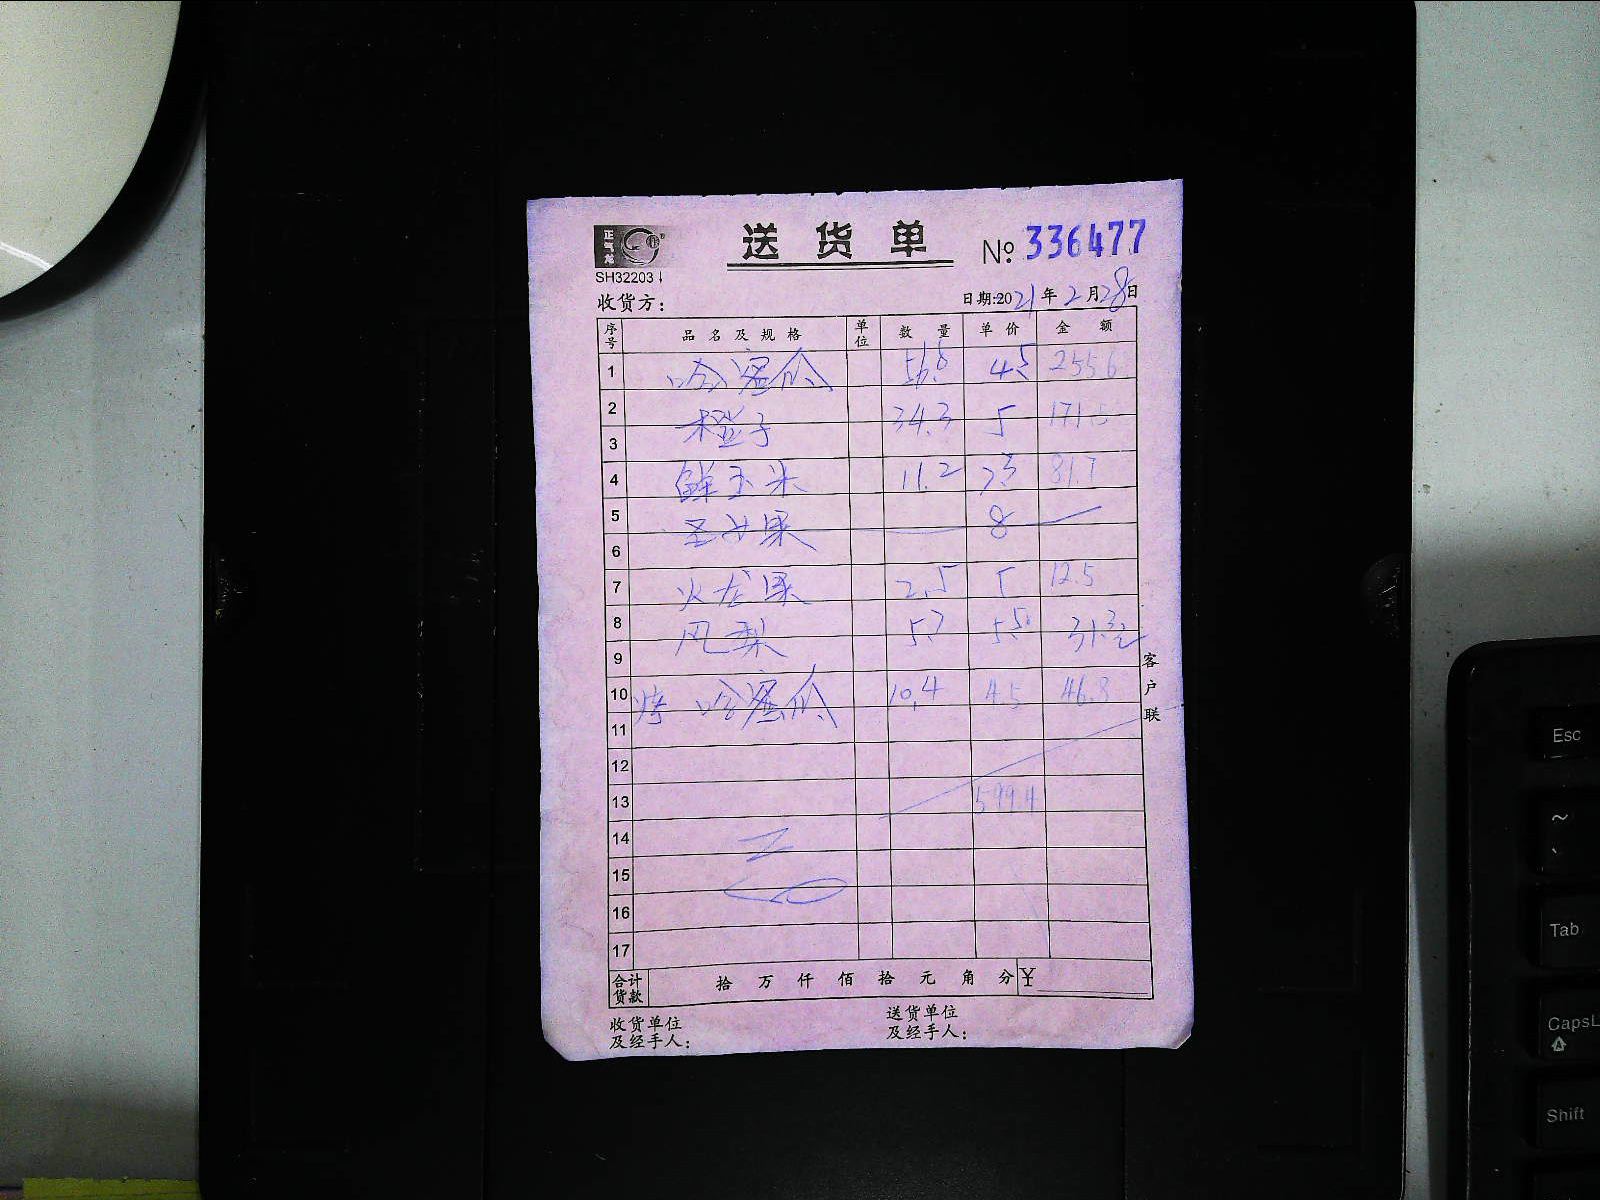 正气龙
送货单 № 336477
SH32203
收货方：
日期:2021年2月28日
序号 品名及规格 单位 数量 单价 金额
1 哈密瓜 56.8 4.5 255.6
2
橙子 34.3 5 171.5
3
4 鲜玉米 11.2 7.3 81.7
5
圣女果 8
6
7 火龙果 2.5 5 12.5
8
凤梨 5.7 5.50
9
10 哈蜜瓜 10.4 4.5 46.8
11
12
13 599.4
14
15
16
17
合计货款 拾万仟佰拾元角分 ¥
收货单位及经手人：
送货单位及经手人：
客户联
Esc
~
Tab
CapsL
Shift